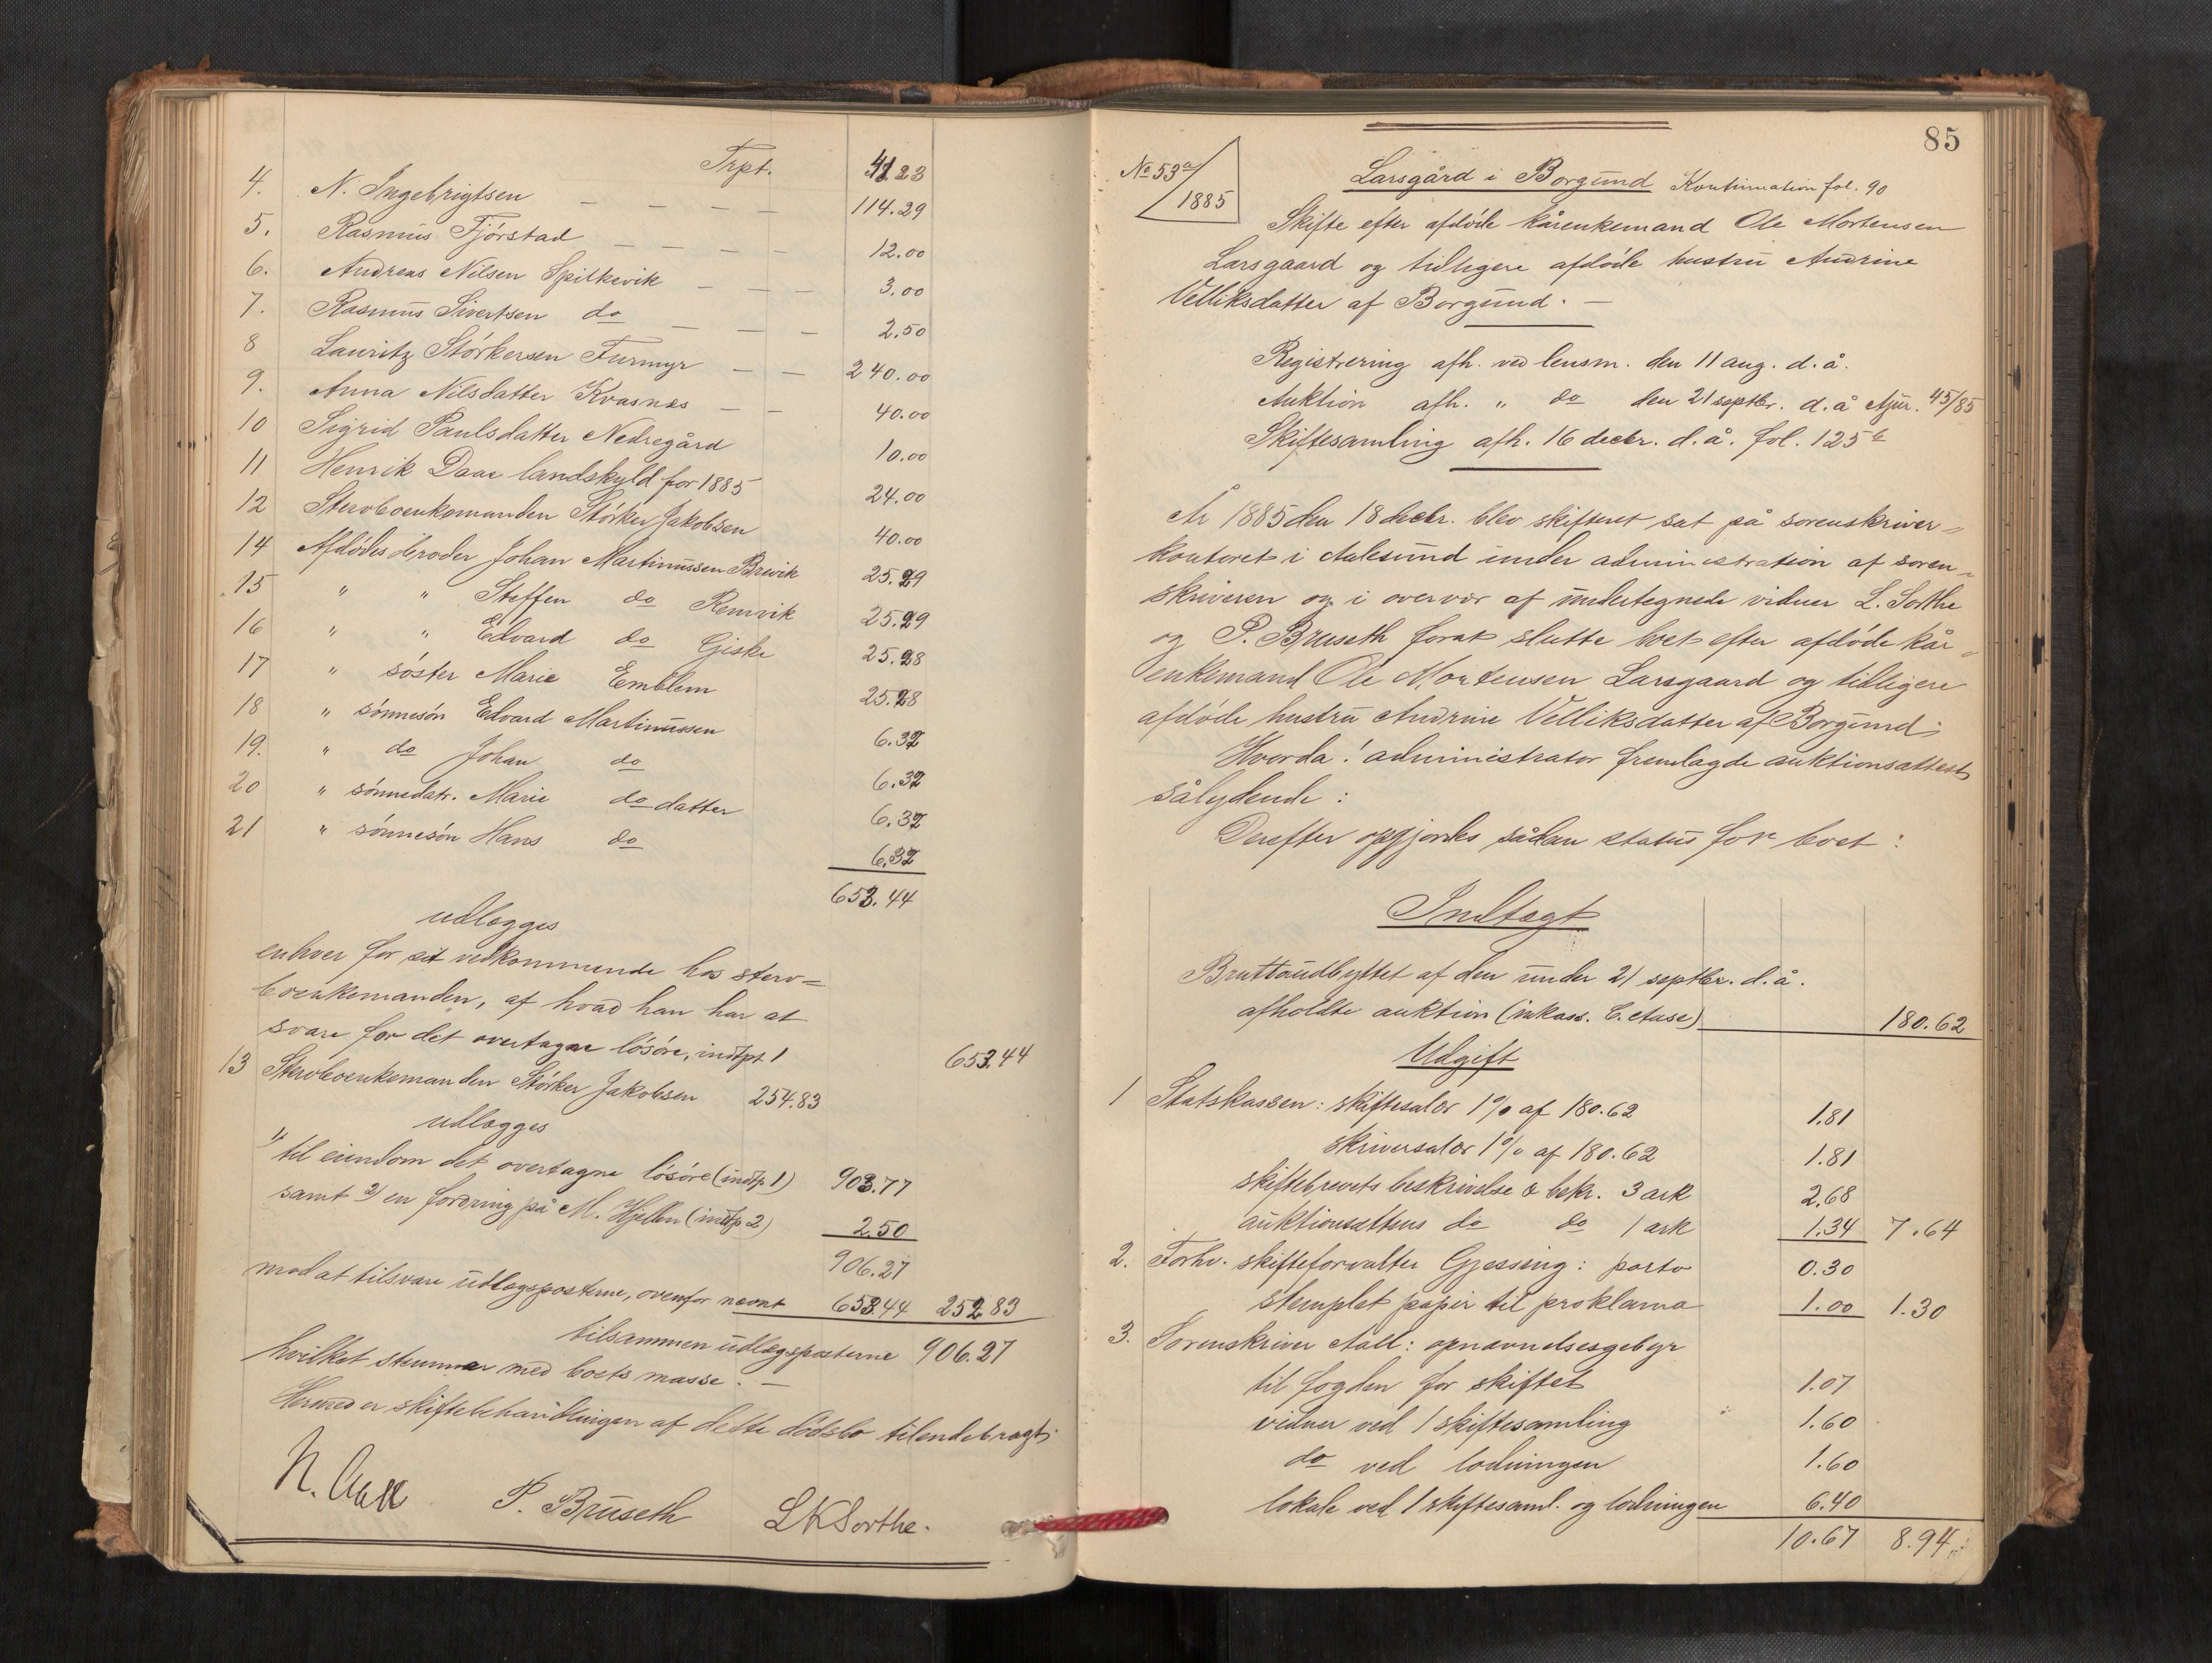 Trpt. 41.23
4. N. Ingebrigtsen — — — — 114.29
5. Rasmus Fjørstad — — — — 12.00
6. Andreas Nilsen Spilkevik — — — 3.00
7. Rasmus Sivertsen do — — — 2.50
8 Lauritz Størkersen Furmyr — — 240.00
9. Anna Nilsdatter Kvasnes — — 40.00
10 Sigrid Paulsdatter Nedregård 10.00
11 Henrik Daae landskyld for 1885 24.00
12 Stervboenkemanden Størker Jakobsen 40.00
14 Afdødes broder Johan Martinussen Brevik 25.29
15 " " Steffen do Remvik 25.29
16 " " Edvard do Giske 25.28
17 " søster Marie Emblem 25.28
18 " sønnesøn Edvard Martinussen 6.32
19. " do Johan do 6.32
20 " sønnedatr. Marie do datter 6.32
21 " sønnesøn Hans do 6.32
653.44
udlægges
enhver for sit vedkommende hos sterv=
boenkemanden, af hvad han har at
svare for det overtagne løsøre, indtpt 1 653.44
13 Stervboenkemanden Størker Jakobsen 254.83
udlægges
1) til eiendom det overtagne løsøre (indtp. 1) 903.77
samt 2) en fordring på M. Hjellen (indtp 2) 2.50
906.27
mod at tilsvare udlægsposterne, ovenfor nævnt 653.44 252.83
tilsammen udlægsposterne 906.27
hvilket stemmer med boets masse. —
Hermed er skiftebehandlingen af dette dødsbo tilendebragt.
N. Aall P. Bruseth LKSorthe.
85
No 53a/1885
Larsgård i Borgund Kontinuation fol. 90
Skifte efter afdøde kårenkemand Ole Mortensen
Larsgaard og tidligere afdøde hustru Andrine
Velliksdatter af Borgund. —
Registrering afh. ved lensm. den 11 aug. d.å.
Auktion afh. " do den 21 septbr. d.å Ajur. 45/85
Skiftesamling afh. 16 decbr. d.å. fol. 125 b
År 1885 den 18 decbr. blev skifteret sat på sorenskriver=
kontoret i Aalesund under administration af soren=
skriveren og i overvær af undertegnede vidner L. Sorthe
og P. Bruseth forat slutte boet efter afdøde kår=
enkemand Ole Mortensen Larsgaard og tidligere
afdøde hustru Andrine Velliksdatter af Borgund;
Hvorda: administrator fremlagde auktionsattest
sålydende:
Derefter opgjordes sådan status for boet:
Indtægt
Bruttoudbyttet af den under 21 septbr. d.å.
afholdte auktion (inkass. C. Aase) 180.62
Udgift
1 Statskassen: skiftesalær 1% af 180.62 1.81
skriversalær 1% af 180.62 1.81
skiftebrevets beskrivelse & bekr. 3 ark 2.68
auktionsattens do do 1 ark 1.34 7.64
2. Forhv. skifteforvalter Gjessing: porto 0.30
stemplet papir til proklama 1.00 1.30
3. Sorenskriver Aall: opnævnelsesgebyr
til fogden for skiftet 1.07
vidner ved 1 skiftesamling 1.60
do ved lodningen 1.60
lokale ved 1 skiftesaml. og lodningen 6.40
10.67 8.94